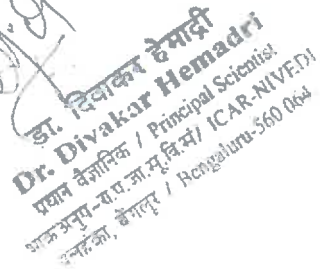 डा. दिवाकर हेमाद्री
Dr. Divakar Hemadri
प्रधान वैज्ञानिक / Principal Scientist
भाकृअनुप-रा.प.जा.सू.वि.सं/ ICAR-NIVEDI
यलहंका, बेंगलूर / Bengaluru-560 064